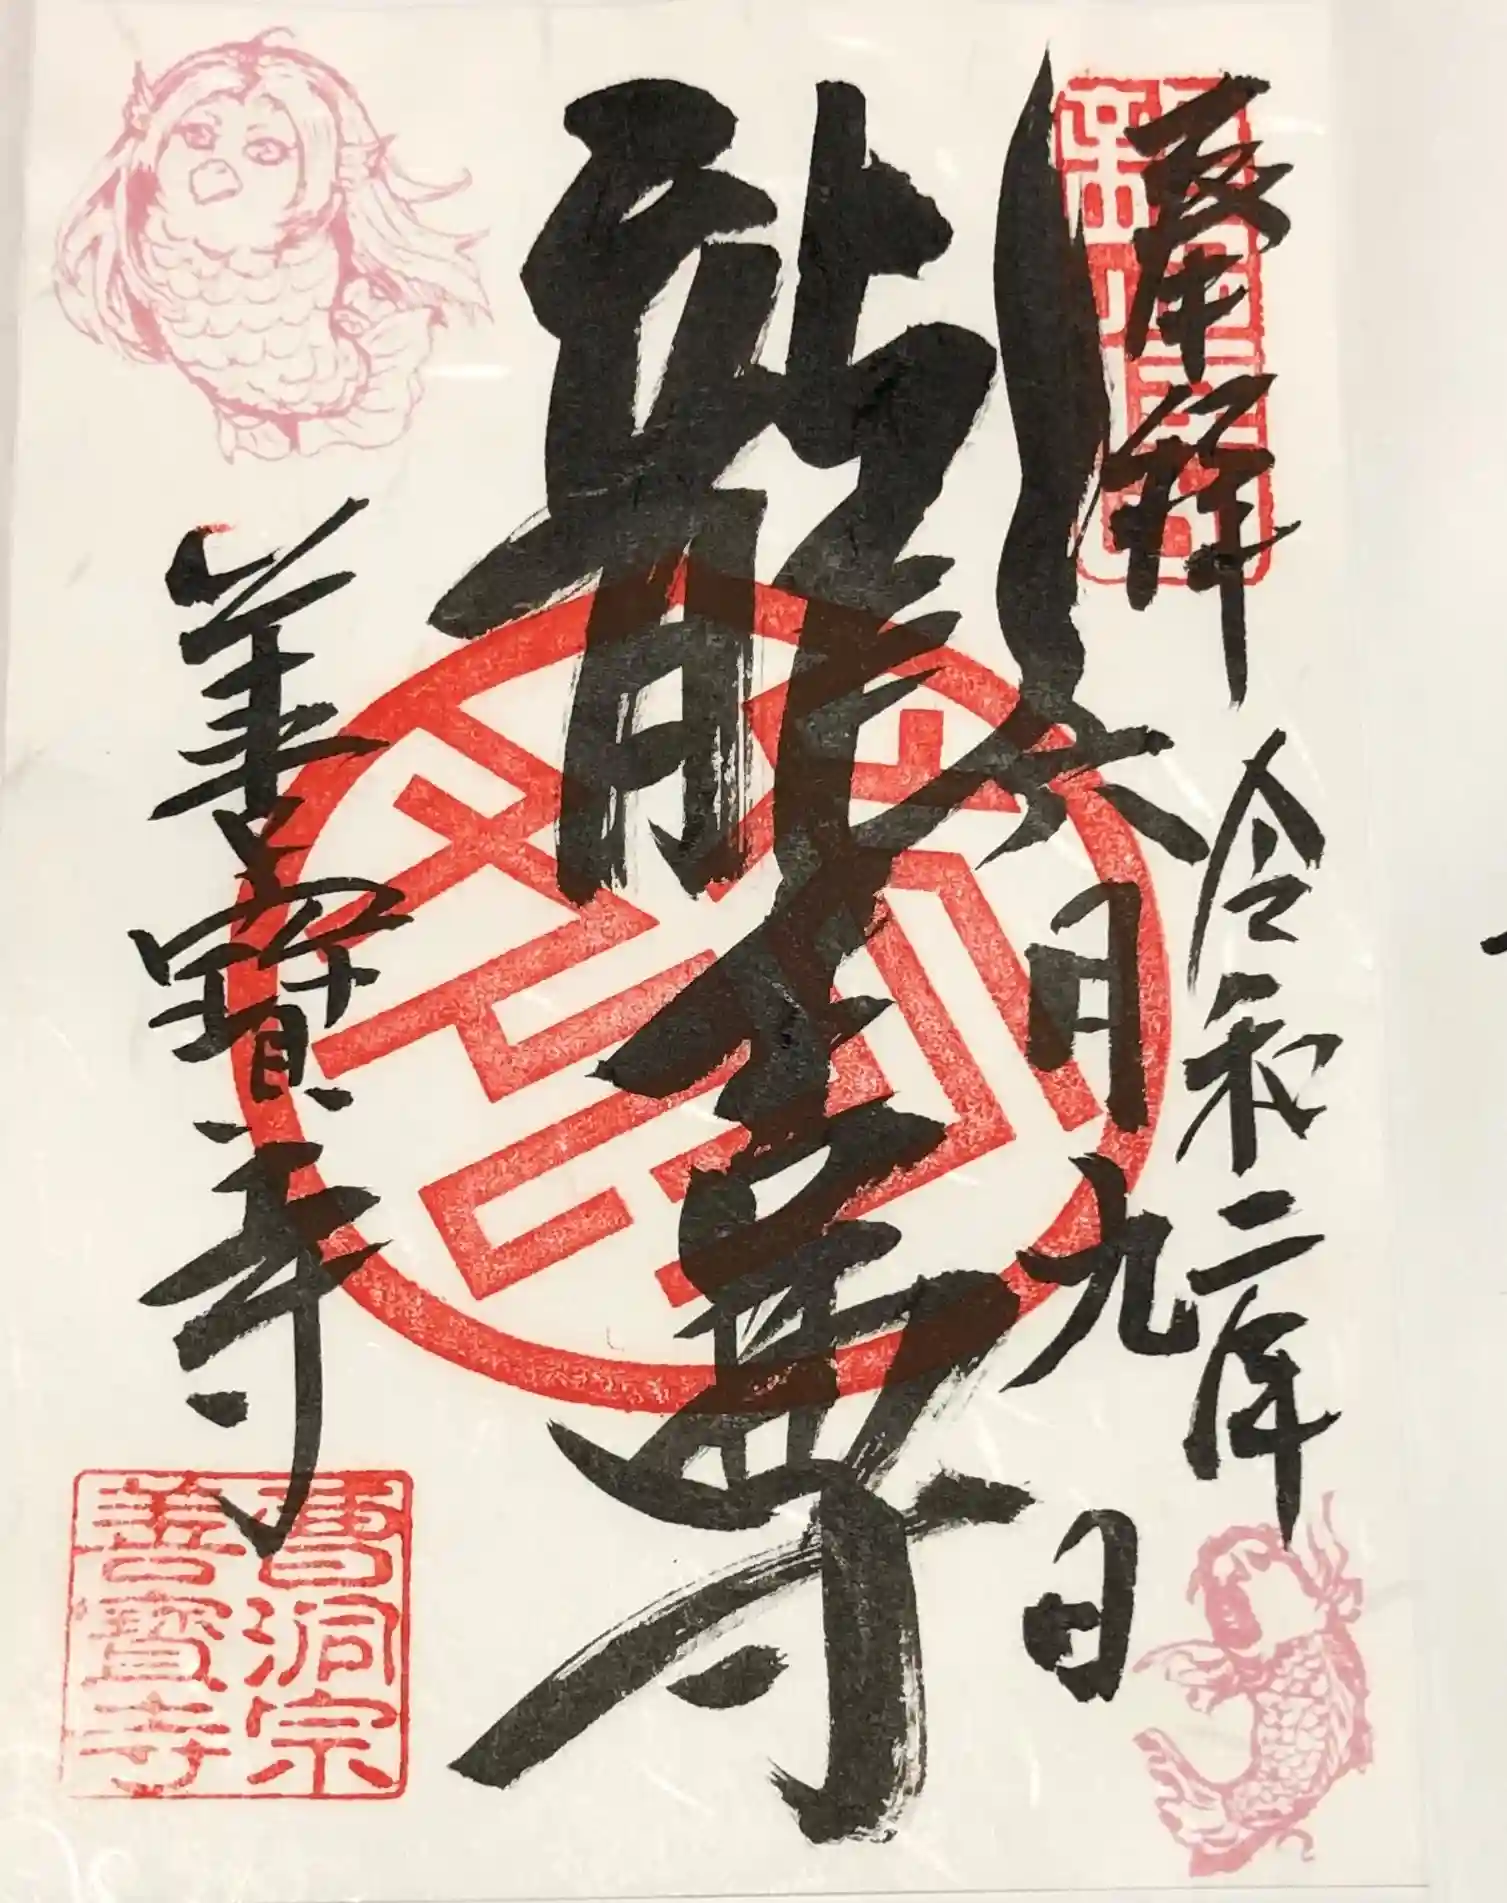 奉拝
令和二年
六月九日
龍王尊
善寳寺
曹洞宗
善寳寺